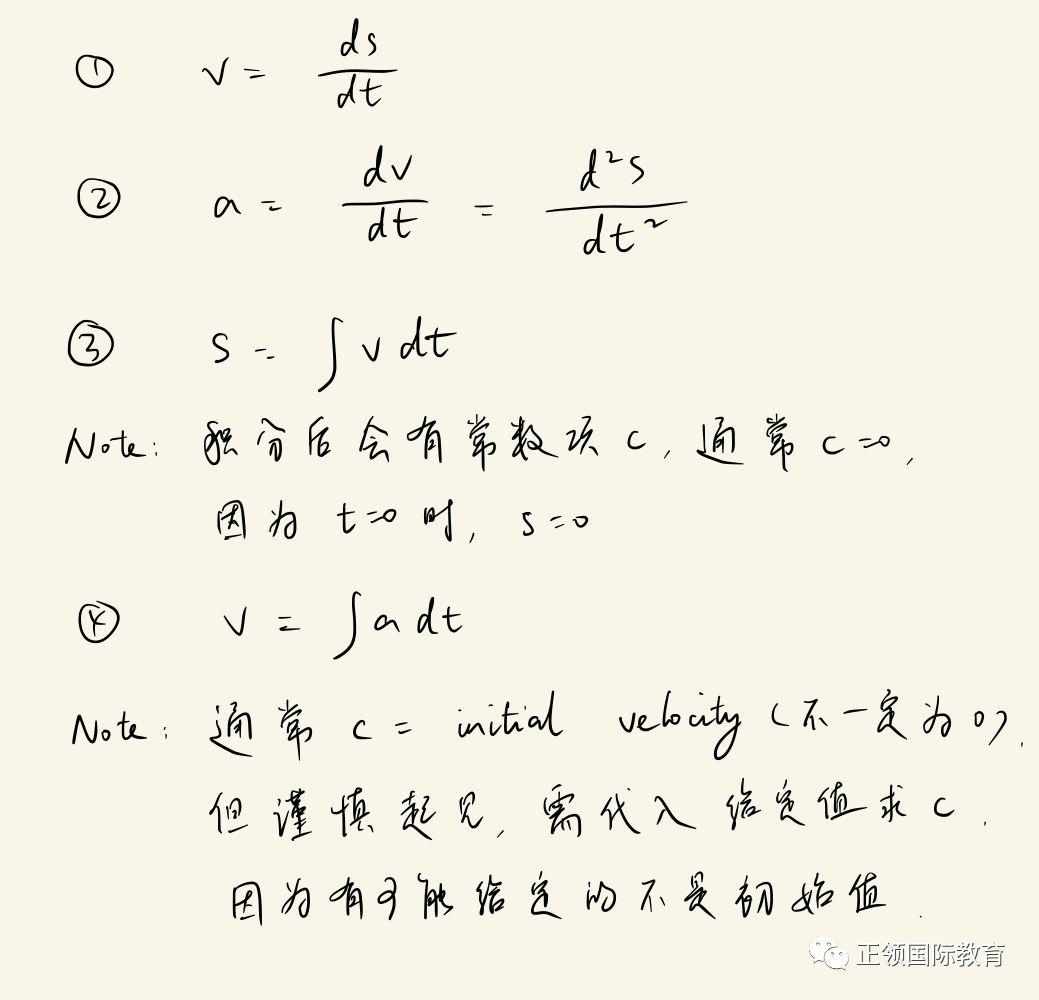 ① v = ds/dt
② a = dv/dt = d²s/dt²
③ s = ∫ v dt
Note: 积分后会有常数项 c, 通常 c=0,
因为 t=0 时, s=0
④ v = ∫ a dt
Note: 通常 c = initial velocity (不一定为0).
但谨慎起见, 需代入给定值求 c.
因为有可能给定的不是初始值.
正领国际教育